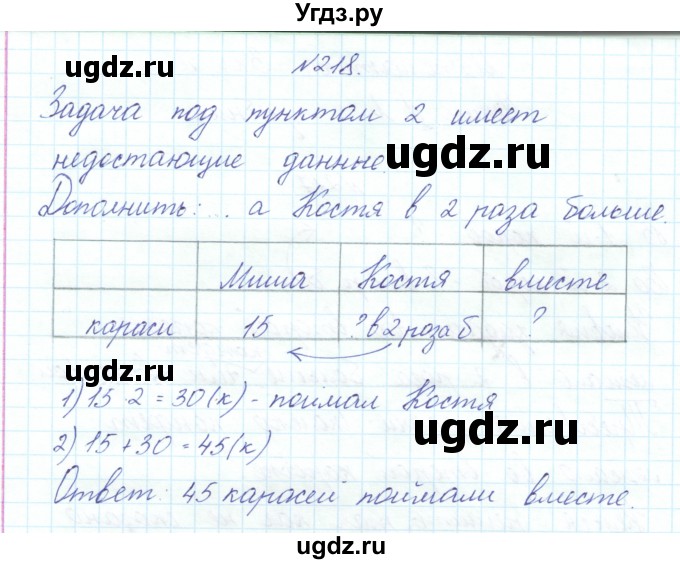 Угдз.ру
№218.
Задача под пунктом 2 имеет
недостающие данные.
Дополнить: .. а Костя в 2 раза больше.
Миша Костя вместе
караси 15 ? в 2 раза б ?
1) 15 · 2 = 30 (к) - поймал Костя
2) 15 + 30 = 45 (к)
Ответ: 45 карасей поймали вместе.
ugdz.ru
ugdz.ru
ugdz.ru
ugdz.ru
ugdz.ru
ugdz.ru
ugdz.ru
ugdz.ru